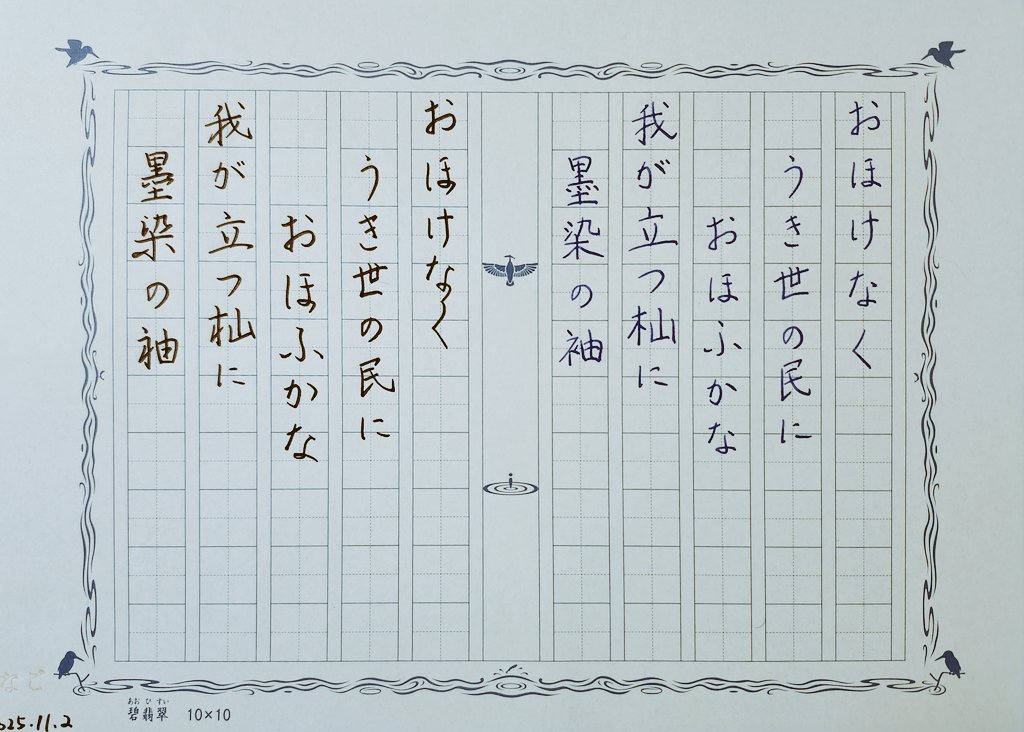 おほけなく
うき世の民に
おほふかな
我が立つ杣に
墨染の袖
おほけなく
うき世の民に
おほふかな
我が立つ杣に
墨染の袖
なご
025.11.2
あおひすい
碧翡翠 10×10